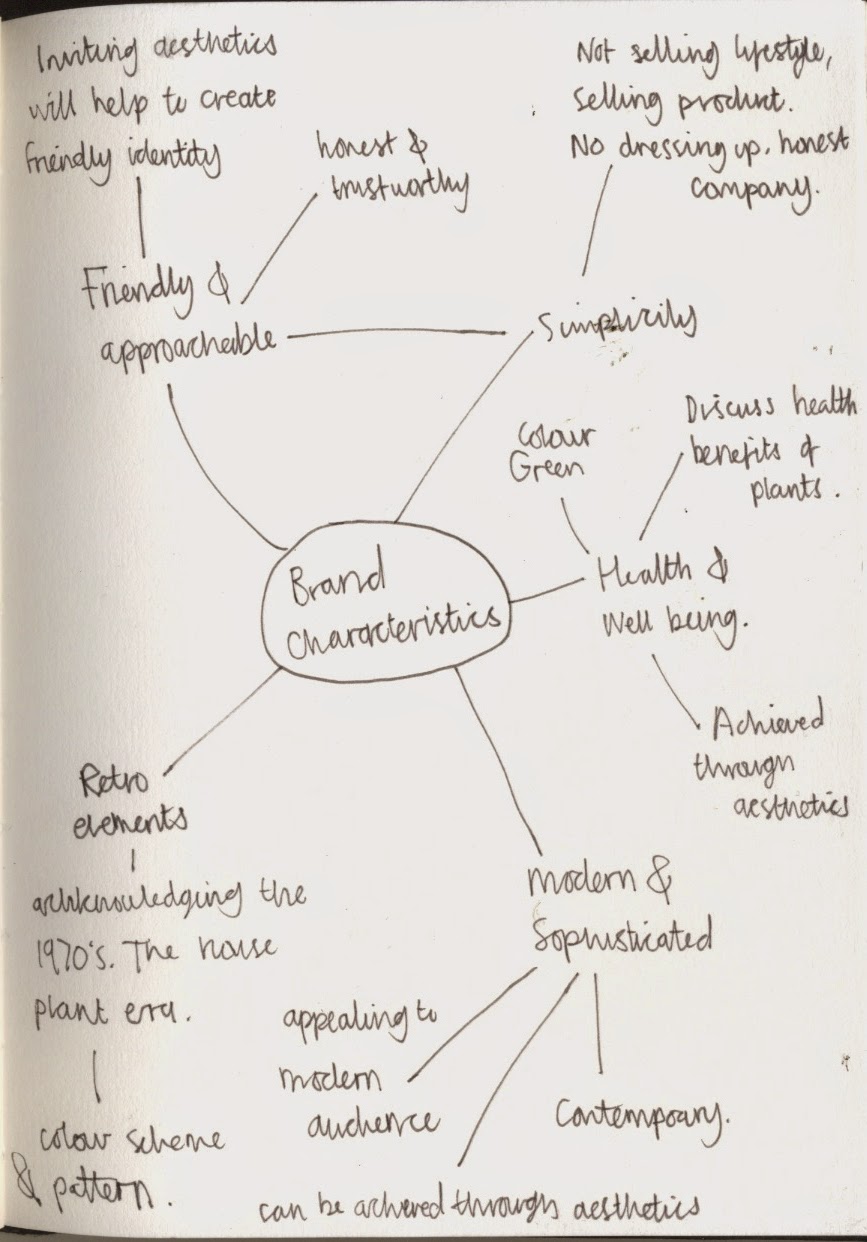 Inviting aesthetics
will help to create
friendly identity
honest &
trustworthy
Not selling lifestyle,
selling product.
No dressing up, honest
company.
Friendly &
approachable
Simplicity
Colour
Green
Discuss health
benefits of
plants.
Health &
Well being.
Brand
Characteristics
Achieved
through
aesthetics
Retro
elements
achknowledging the
1970's. The house
plant era.
colour scheme
& pattern.
Modern &
Sophisticated
appealing to
modern
audience
Contempoary.
can be achieved through aesthetics